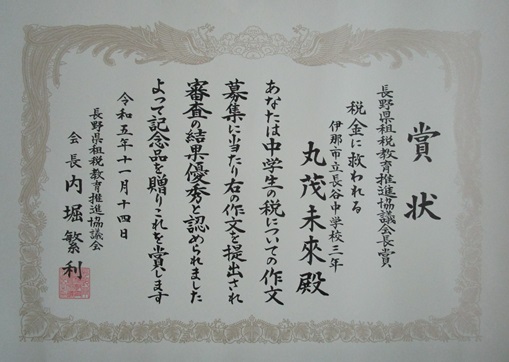 賞状
長野県租税教育推進協議会長賞
税金に救われる
伊那市立長谷中学校三年
丸茂未來殿
あなたは中学生の税についての作文
募集に当たり右の作文を提出され
審査の結果優秀と認められました
よって記念品を贈りこれを賞します
令和五年十一月十四日
長野県租税教育推進協議会
会長内堀繁利